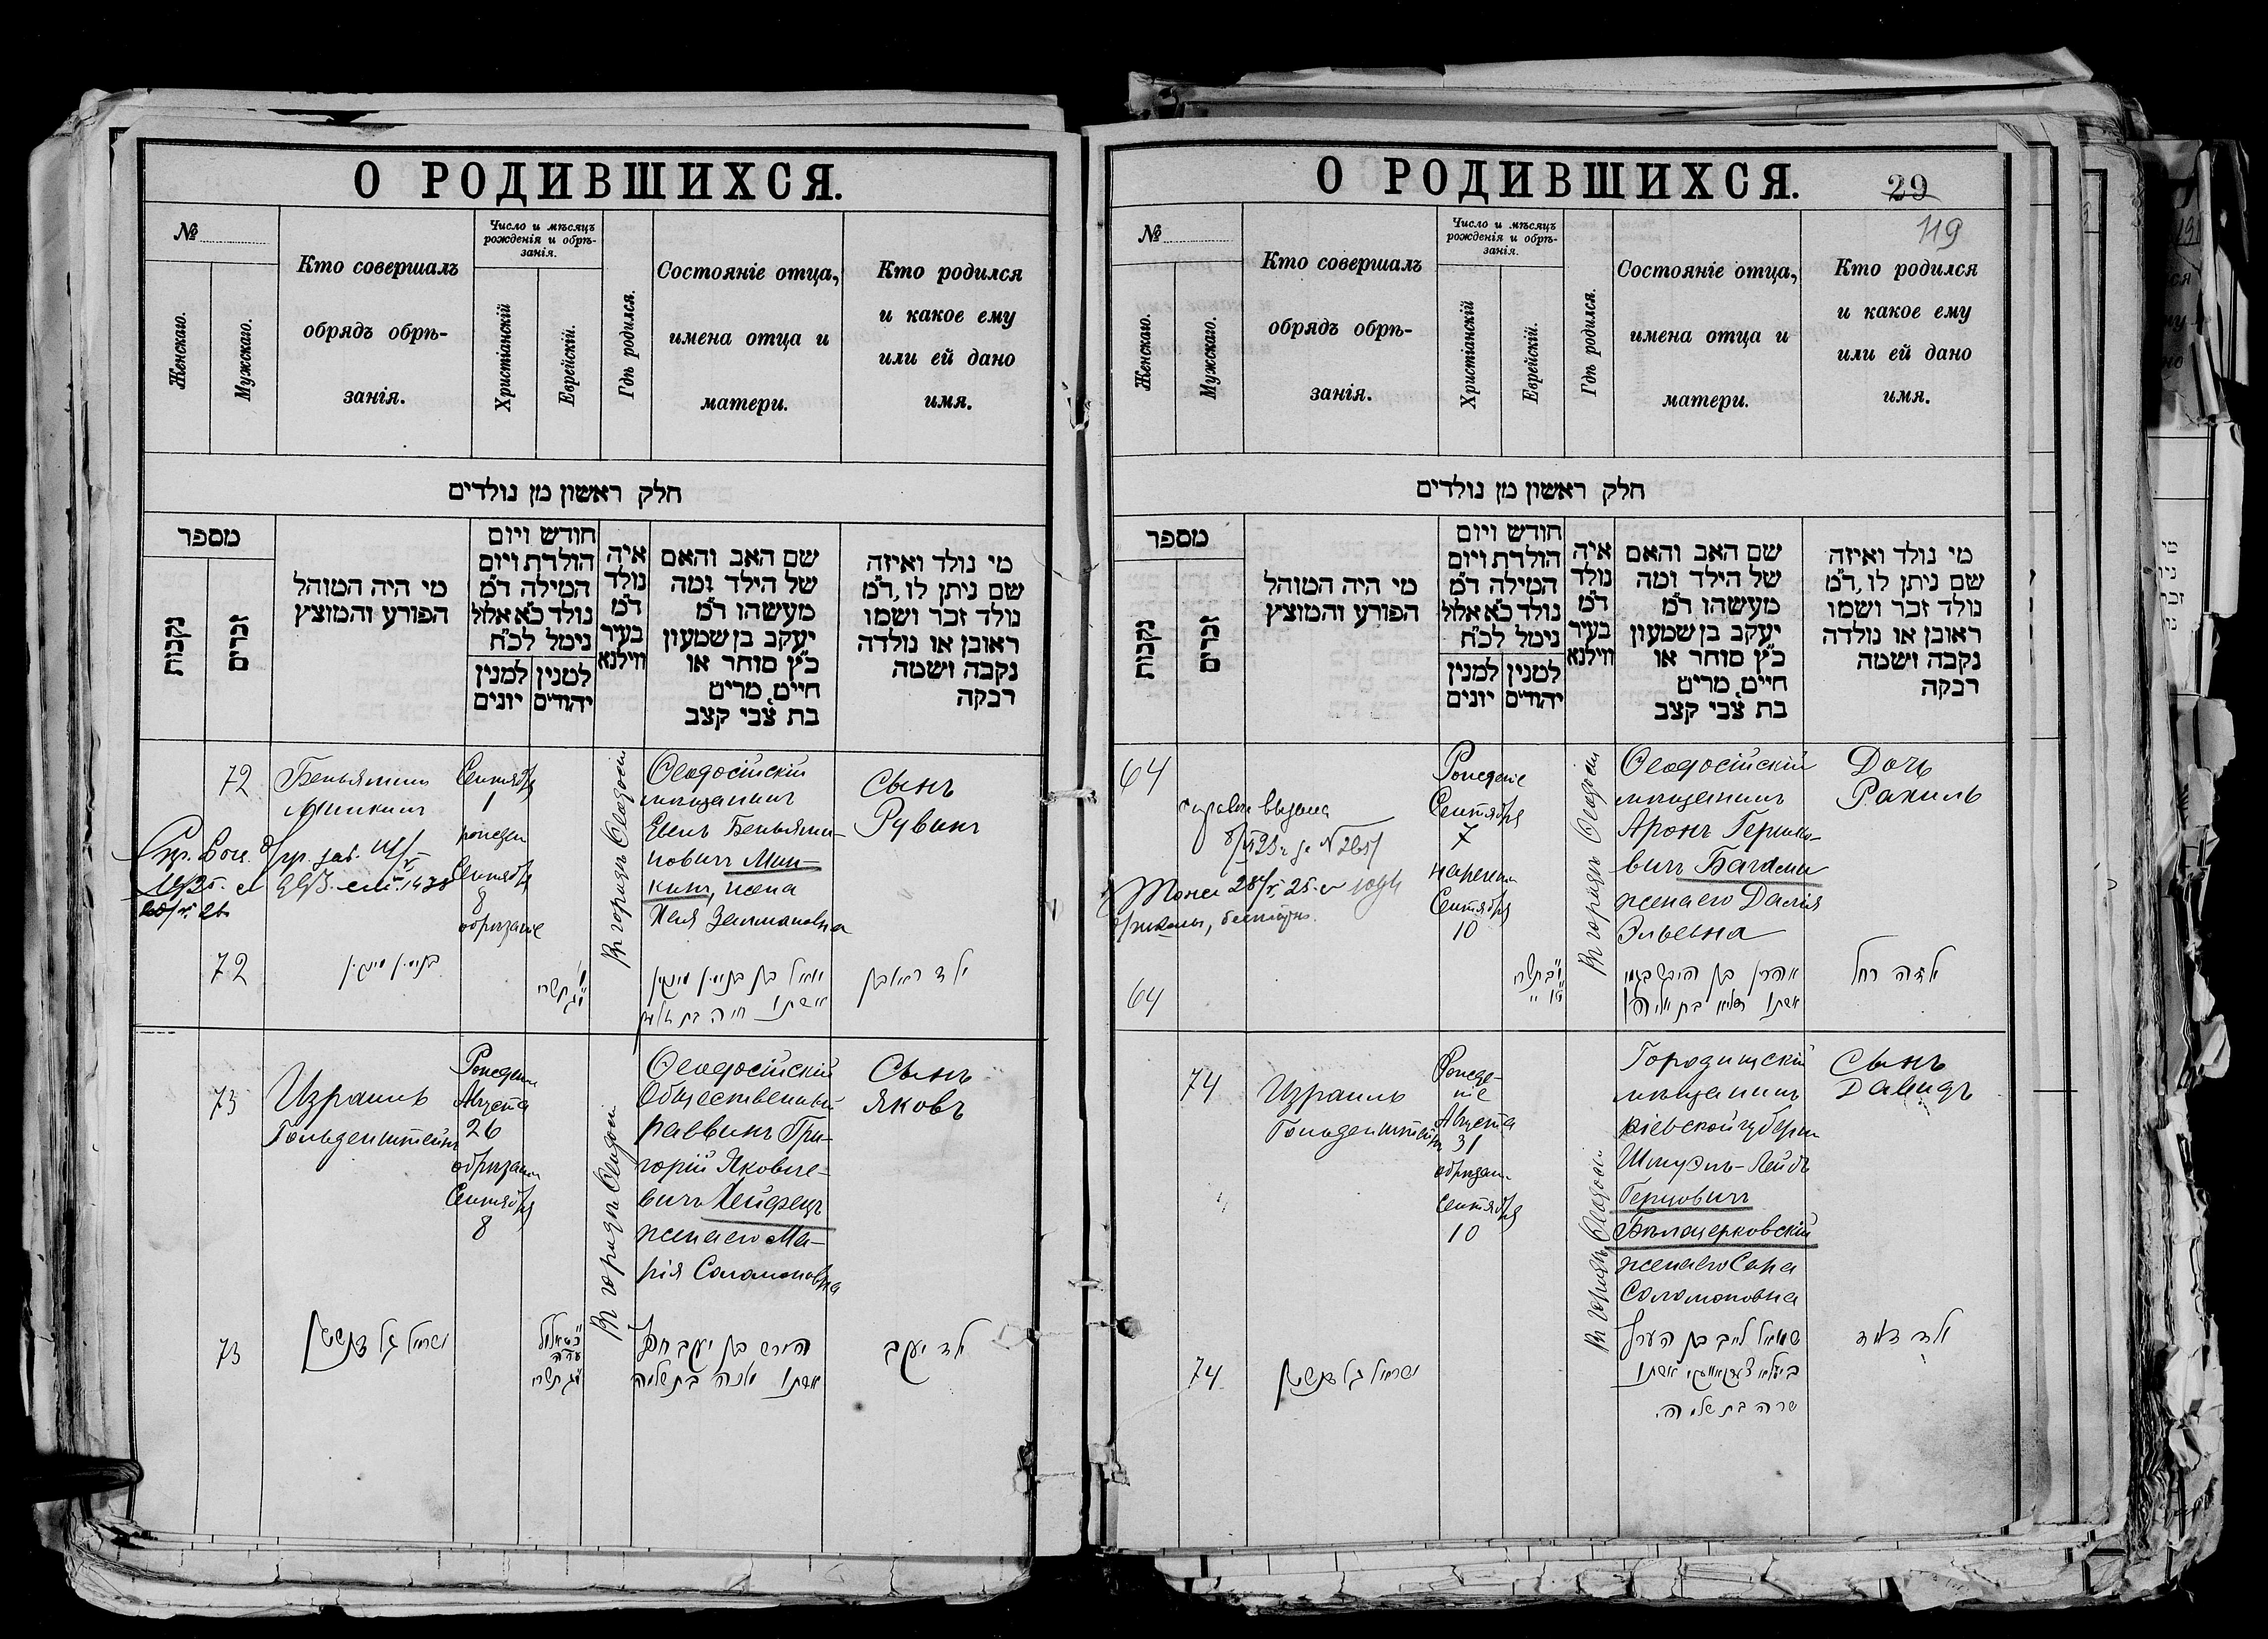 О РОДИВШИХСЯ.
№
Женскаго.
Мужскаго.
Кто совершалъ
обрядъ обрѣ-
занія.
Число и мѣсяцъ
рожденія и обрѣ-
занія.
Христіанскій
Еврейскій.
Гдѣ родился.
Состояніе отца,
имена отца и
матери.
Кто родился
и какое ему
или ей дано
имя.
חלק ראשון מן נולדים
מספר
נקבות
זכרים
מי היה המוהל
הפורע והמוצץ
חודש ויום
הולדת ויום
המילה ד״מ
נולד כ״א אלול
נימל לכ״ח
למנין יונים
למנין יהודים
איה
נולד
ד״מ
בעיר
ווילנא
שם האב והאם
של הילד ומה
מעשהו ד״מ
יעקב בן שמעון
כ״ץ סוחר או
חיים, מרים
בת צבי קצב
מי נולד ואיזה
שם ניתן לו, ד״מ
נולד זכר ושמו
ראובן או נולדה
נקבה ושמה
רבקה
72
Беньяминъ
Минкинъ
Сентября
1
рожден
Сентября
8
обрѣзаніе
Въ городѣ Ѳеодосіи
Ѳеодосійскій
мѣщанинъ
Беньями-
новичъ Мин-
кинъ, жена
Хая Залмановна
Сынъ
Рувинъ
72
בנימין מינקין
י״ג תשרי
בן בנימין מינקין
אשתו חיה בת זלמן
ילד ראובן
73
Израиль
Гольденштейнъ
Рожденіе
Августа
26
обрѣзаніе
Сентября
8
Въ городѣ Ѳеодосіи
Ѳеодосійскій
Общественный
раввинъ Гри-
горій Яковле-
вичъ Хейфецъ
жена его Ма-
рія Соломоновна
Сынъ
Яковъ
73
ישראל גולדנשטיין
י״ג תשרי
הירש בן יעקב חפץ
אשתו בת שלמה
ילד יעקב
О РОДИВШИХСЯ.
29
119
№
Женскаго.
Мужскаго.
Кто совершалъ
обрядъ обрѣ-
занія.
Число и мѣсяцъ
рожденія и обрѣ-
занія.
Христіанскій
Еврейскій.
Гдѣ родился.
Состояніе отца,
имена отца и
матери.
Кто родился
и какое ему
или ей дано
имя.
חלק ראשון מן נולדים
מספר
נקבות
זכרים
מי היה המוהל
הפורע והמוצץ
חודש ויום
הולדת ויום
המילה ד״מ
נולד כ״א אלול
נימל לכ״ח
למנין יונים
למנין יהודים
איה
נולד
ד״מ
בעיר
ווילנא
שם האב והאם
של הילד ומה
מעשהו ד״מ
יעקב בן שמעון
כ״ץ סוחר או
חיים, מרים
בת צבי קצב
מי נולד ואיזה
שם ניתן לו, ד״מ
נולד זכר ושמו
ראובן או נולדה
נקבה ושמה
רבקה
64
выдана
Рожденіе
Сентября
7
наречена
Сентября
10
Въ городѣ Ѳеодосіи
Ѳеодосійскій
мѣщанинъ
Аронъ Гершко-
вичъ
жена его
Дочь
Рахиль
64
אהרן בן הירש
אשתו בת
ילדה רחל
74
Израиль
Гольденштейнъ
Рожде-
ніе
Августа
31
обрѣзан.
Сентября
10
Въ городѣ Ѳеодосіи
Городищскій
мѣщанинъ
Кіевской губерніи
Шмуэль-Лейбъ
Герцовичъ
Бѣлоцерковскій
жена его Сара
Соломоновна
Сынъ
Давидъ
74
ישראל גולדנשטיין
שמואל לייב בן הערץ
אשתו
שרה בת שלמה.
ילד דוד